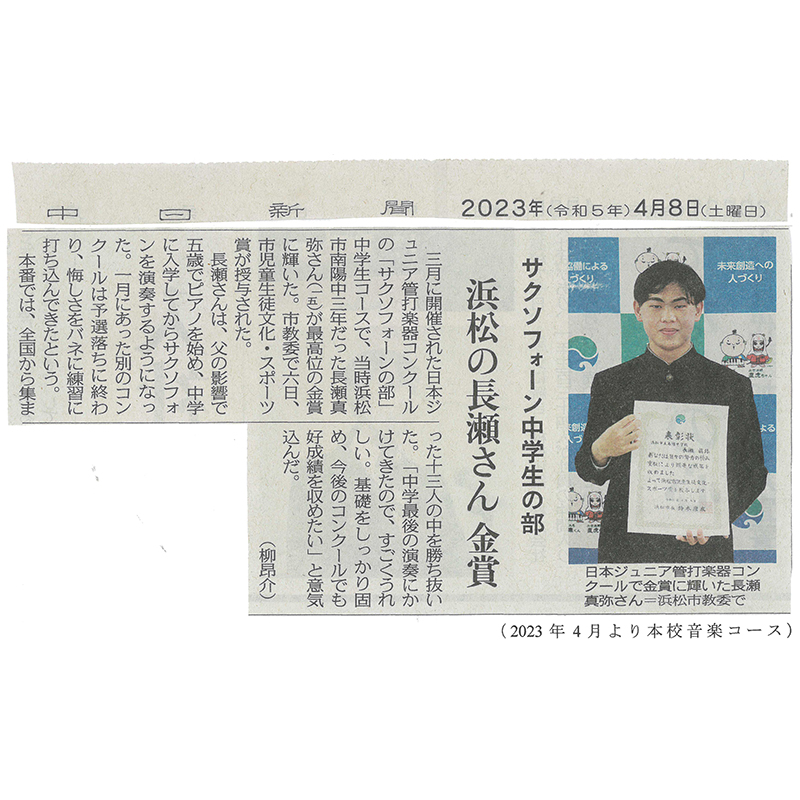 中日新聞 2023年(令和5年)4月8日(土曜日)
サクソフォーン中学生の部
浜松の長瀬さん 金賞
三月に開催された日本ジ
ュニア管打楽器コンクール
の「サクソフォーンの部」
中学生コースで、当時浜松
市南陽中三年だった長瀬真
弥さん(一五)が最高位の金賞
に輝いた。市教委で六日、
市児童生徒文化・スポーツ
賞が授与された。
長瀬さんは、父の影響で
五歳でピアノを始め、中学
に入学してからサクソフォ
ンを演奏するようになっ
た。一月にあった別のコン
クールは予選落ちに終わ
り、悔しさをバネに練習に
打ち込んできたという。
本番では、全国から集ま
った十三人の中を勝ち抜い
た。「中学最後の演奏にか
けてきたので、すごくうれ
しい。基礎をしっかり固
め、今後のコンクールでも
好成績を収めたい」と意気
込んだ。
(柳昂介)
協働による
未来創造への
人づくり
表彰状
日本ジュニア管打楽器コン
クールで金賞に輝いた長瀬
真弥さん=浜松市教委で
(2023年4月より本校音楽コース)